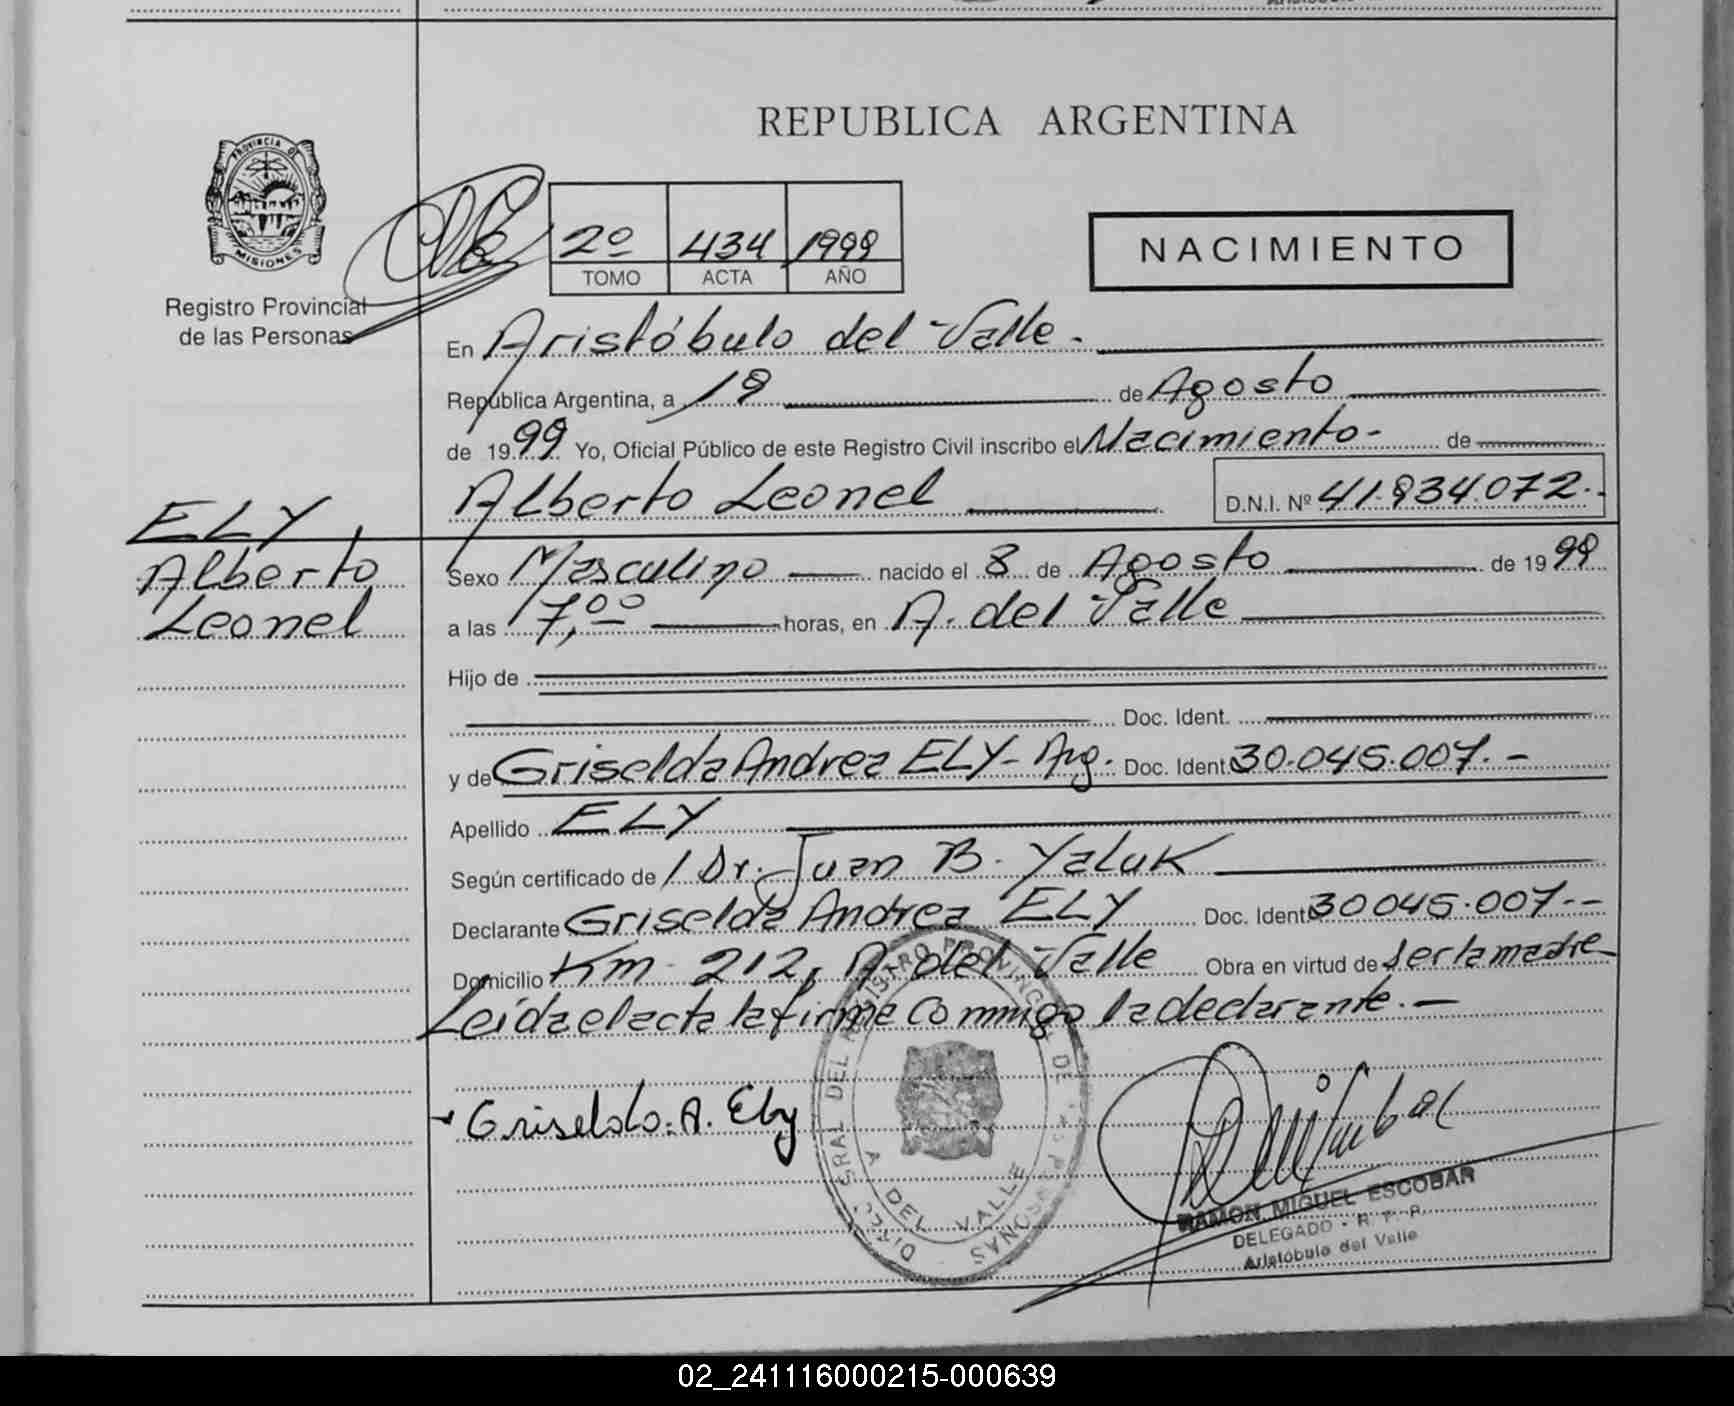 REPUBLICA ARGENTINA
PROVINCIA DE
MISIONES
Registro Provincial
de las Personas
2º 434 1999
TOMO ACTA AÑO
NACIMIENTO
En Aristóbulo del Valle.
República Argentina, a 18 de Agosto
de 1999 Yo, Oficial Público de este Registro Civil inscribo el Nacimiento- de
Alberto Leonel D.N.I. Nº 41.834.072.-
ELY,
Alberto
Leonel
Sexo Masculino nacido el 8 de Agosto de 1999
a las 17,00 horas, en A. del Valle
Hijo de
Doc. Ident.
y de Griselda Andrea ELY- Arg. Doc. Ident. 30.045.007.-
Apellido ELY
Según certificado de / Dr. Juan B. Yaluk
Declarante Griselda Andrea ELY Doc. Ident. 30045.007.-
Domicilio Km. 212, A. del Valle Obra en virtud de ser la madre
Leída el acta la firma conmigo la declarante.-
Griselda. A. Ely
A DEL VALLE
RAMON MIGUEL ESCOBAR
DELEGADO - R. P. P.
Aristóbulo del Valle
02_241116000215-000639